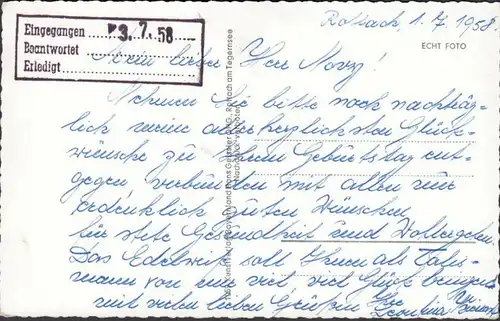 Rottach, 1.7.1958.
Eingegangen 3. 7. 58
Beantwortet
Erledigt
ECHT FOTO
Mein lieber Herr
Nehmen Sie bitte noch nachträg-
lich meine allerherzlichsten Glück-
wünsche zu Ihrem Geburtstag ent-
gegen verbunden mit allen nur
erdenklich guten Wünschen
für stete Gesundheit und Wohlergehen.
Das Edelweiß soll Ihnen als Talis-
mann von mir viel, viel Glück bringen
mit vielen lieben Grüßen Ihre
Rottach am Tegernsee